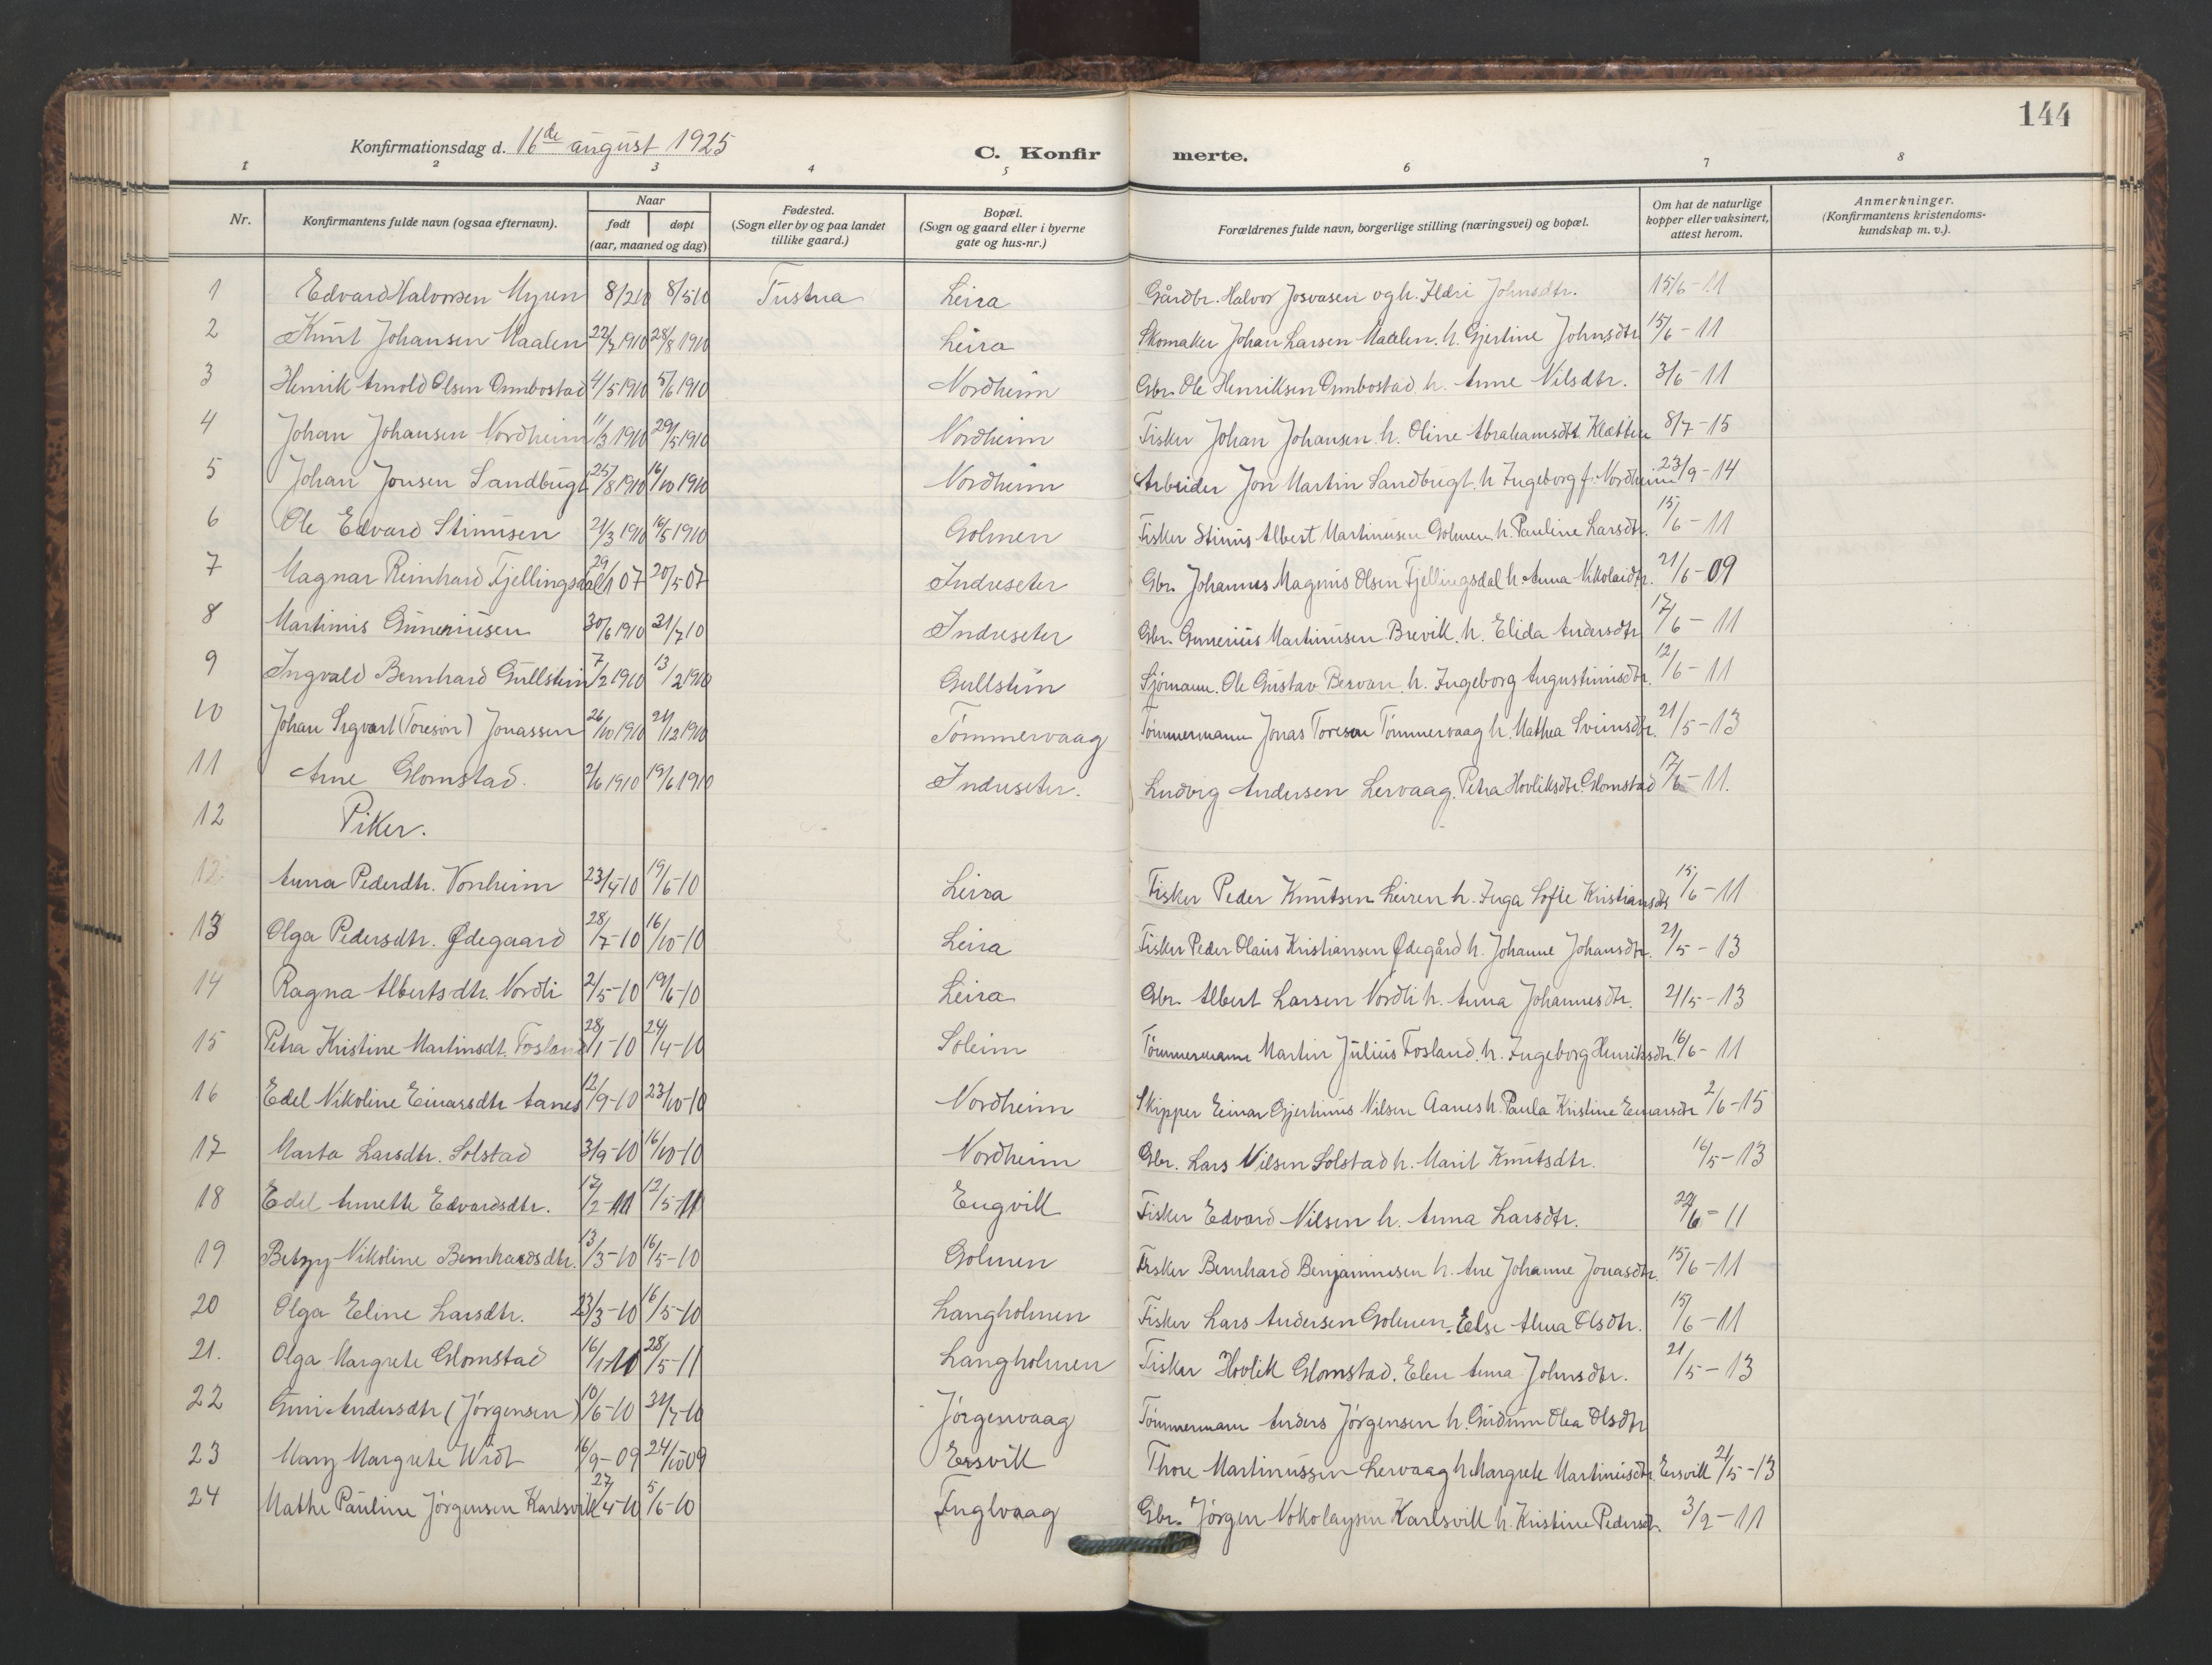 144
Konfirmationsdag d. 16de august 1925
C. Konfirmerte.
1 2 3 4 5 6 7 8
Nr. Konfirmantens fulde navn (ogsaa efternavn). Naar født døpt (aar, maaned og dag) Fødested. (Sogn eller by og paa landet tillike gaard.) Bopæl. (Sogn og gaard eller i byerne gate og hus-nr.) Forældrenes fulde navn, borgerlige stilling (næringsvei) og bopæl. Om hat de naturlige kopper eller vaksinert, attest herom. Anmerkninger. (Konfirmantens kristendoms-kundskap m. v.).
1 Edvard Halvorsen Myren 8/2 10 8/5 10 Tustna Leira Gårdbr. Halvor Josvasen og h. Ildri Johnsdtr. 15/6-11
2 Knut Johansen Maalen 22/7 1910 28/8 1910 Leira Skomaker Johan Larsen Maalen. h. Gjertine Johnsdtr 15/6-11
3 Henrik Arnold Olsen Onnbostad 4/5 1910 5/6 1910 Nordheim Gbr. Ole Henriksen Onnbostad h. Anne Nilsdtr. 3/6-11
4 Johan Johansen Nordheim 11/3 1910 29/5 1910 Nordheim Fisker Johan Johansen. h. Oline Abrahamsdtt. Kletten 8/7-15
5 Johan Jonsen Sandbugt 25/8 1910 16/10 1910 Nordheim Arbeider Jon Martin Sandbugt. h Ingeborg f. Nordheim 23/9-14
6 Ole Edvard Stinusen 21/3 1910 16/5 1910 Golmen Fisker Stinus Albert Martinusen Golmen h. Pauline Larsdtr. 15/6-11
7 Magnar Reinhard Fjellingsdal 29/1 07 20/5 07 Indreseter Gbr. Johannes Magnus Olsen Fjellingsdal h Anna Nikolaidtr. 21/6-09
8 Martinus Guneriusen 30/6 1910 31/7 10 Indreseter Gbr. Gunerius Martinusen Brevik. h. Elida Andersdtr 17/6-11
9 Ingvald Bernhard Gullstein 7/2 1910 13/2 1910 Gullstein Sjømann. Ole Gustav Bervan. h. Ingeborg Augustinusdtr. 12/6-11
10 Johan Sigvart (Toresøn) Jonassen 26/10 1910 21/12 1910 Tømmervaag Tømmermann Jonas Toresøn Tømmervaag h. Mathea Sveinsdtr. 21/5-13
11 Arne Glomstad. 2/6 1910 19/6 1910 Indreseter. Ludvig Andersen Lervaag. Petra Hovliksdtr. Glomstad 17/6-11.
12 Piker.
12. Anna Pedersdtr. Vonheim 23/4 10 19/6-10 Leira Fisker Peder Knutsen Leiren h. Inga Sofie Kristiansdtr 15/6-11
13 Olga Pedersdtr. Ødegaard 28/7-10 16/10-10 Leira Fisker Peder Olaus Kristiansen Ødegård h. Johanne Johansdtr. 21/5-13
14 Ragna Albertsdtr. Nordli 2/5-10 19/6-10 Leira Gbr. Albert Larsen Nordli h. Anna Johannesdtr. 21/5-13
15 Petra Kristine Martinsdt. Fosland 28/1-10 24/4-10 Soleim Tømmermann Martin Julius Fosland. h. Ingeborg Henriksdtr. 16/6-11
16 Edel Nikoline Einarsdtr Aanes 12/9-10 23/10-10 Nordheim Skipper Einar Gjertinus Nilsen Aanes h. Paula Kristine Einarsdtr 2/6-15
17 Marta Larsdtr. Solstad 3/9-10 16/10-10 Nordheim Gbr. Lars Nilsen Solstad h. Marit Knutsdtr. 16/5-13
18 Edel Annette Edvardsdtr. 12/2-11 12/5-11 Engvik Fisker Edvard Nilsen h. Anna Larsdtr. 22/6-11
19 Betzy Nikoline Bernhardsdtr. 13/3-10 16/5-10 Golmen Fisker Bernhard Benjaminsen h. Ane Johanne Jonasdtr. 15/6-11
20 Olga Eline Larsdtr. 23/3-10 16/5-10 Langholmen Fisker Lars Andersen Golmen. Else Alma Olsdtr. 15/6-11
21. Olga Margrete Glomstad 16/1-11 28/5-11 Langholmen Fisker Hovlik Glomstad. Elen Anna Johnsdtr. 21/5-13
22 Guri Andersdtr (Jørgensen) 10/6-10 31/7-10 Jørgenvaag Tømmermann Anders Jørgensen h. Gudrun Olea Olsdtr
23 Mary Margrete Widt 16/9-09 24/10 09 Ersvik Thore Martinussen Lervaag h. Margrete Martinusdtr. Ersvik 21/5-13
24 Mathe Pauline Jørgensen Karlsvik 27/4-10 5/6-10 Fuglvaag Gbr. Jørgen Nokolaysen Karlsvik h. Kristine Pedersdt. 3/2-11